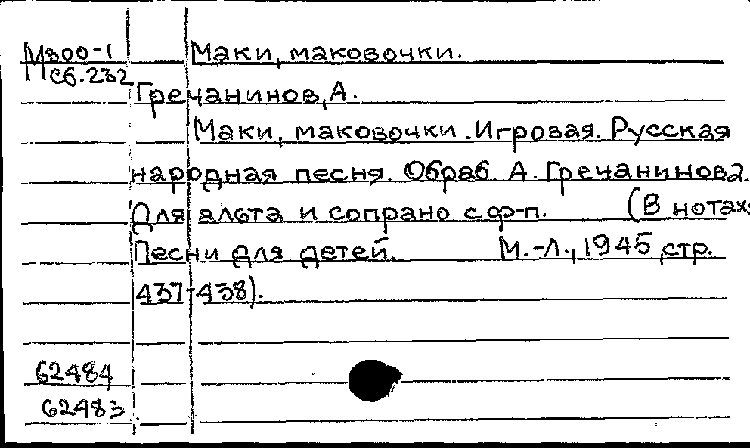 М800-1 Маки, маковочки.
Сб.232
Гречанинов, А.
Маки, маковочки. Игровая. Русская
народная песня. Обраб. А. Гречанинова.
Для альта и сопрано с ф-п. (В нотах:
Песни для детей. М.-Л., 1945, стр.
437-438).
62484
62483